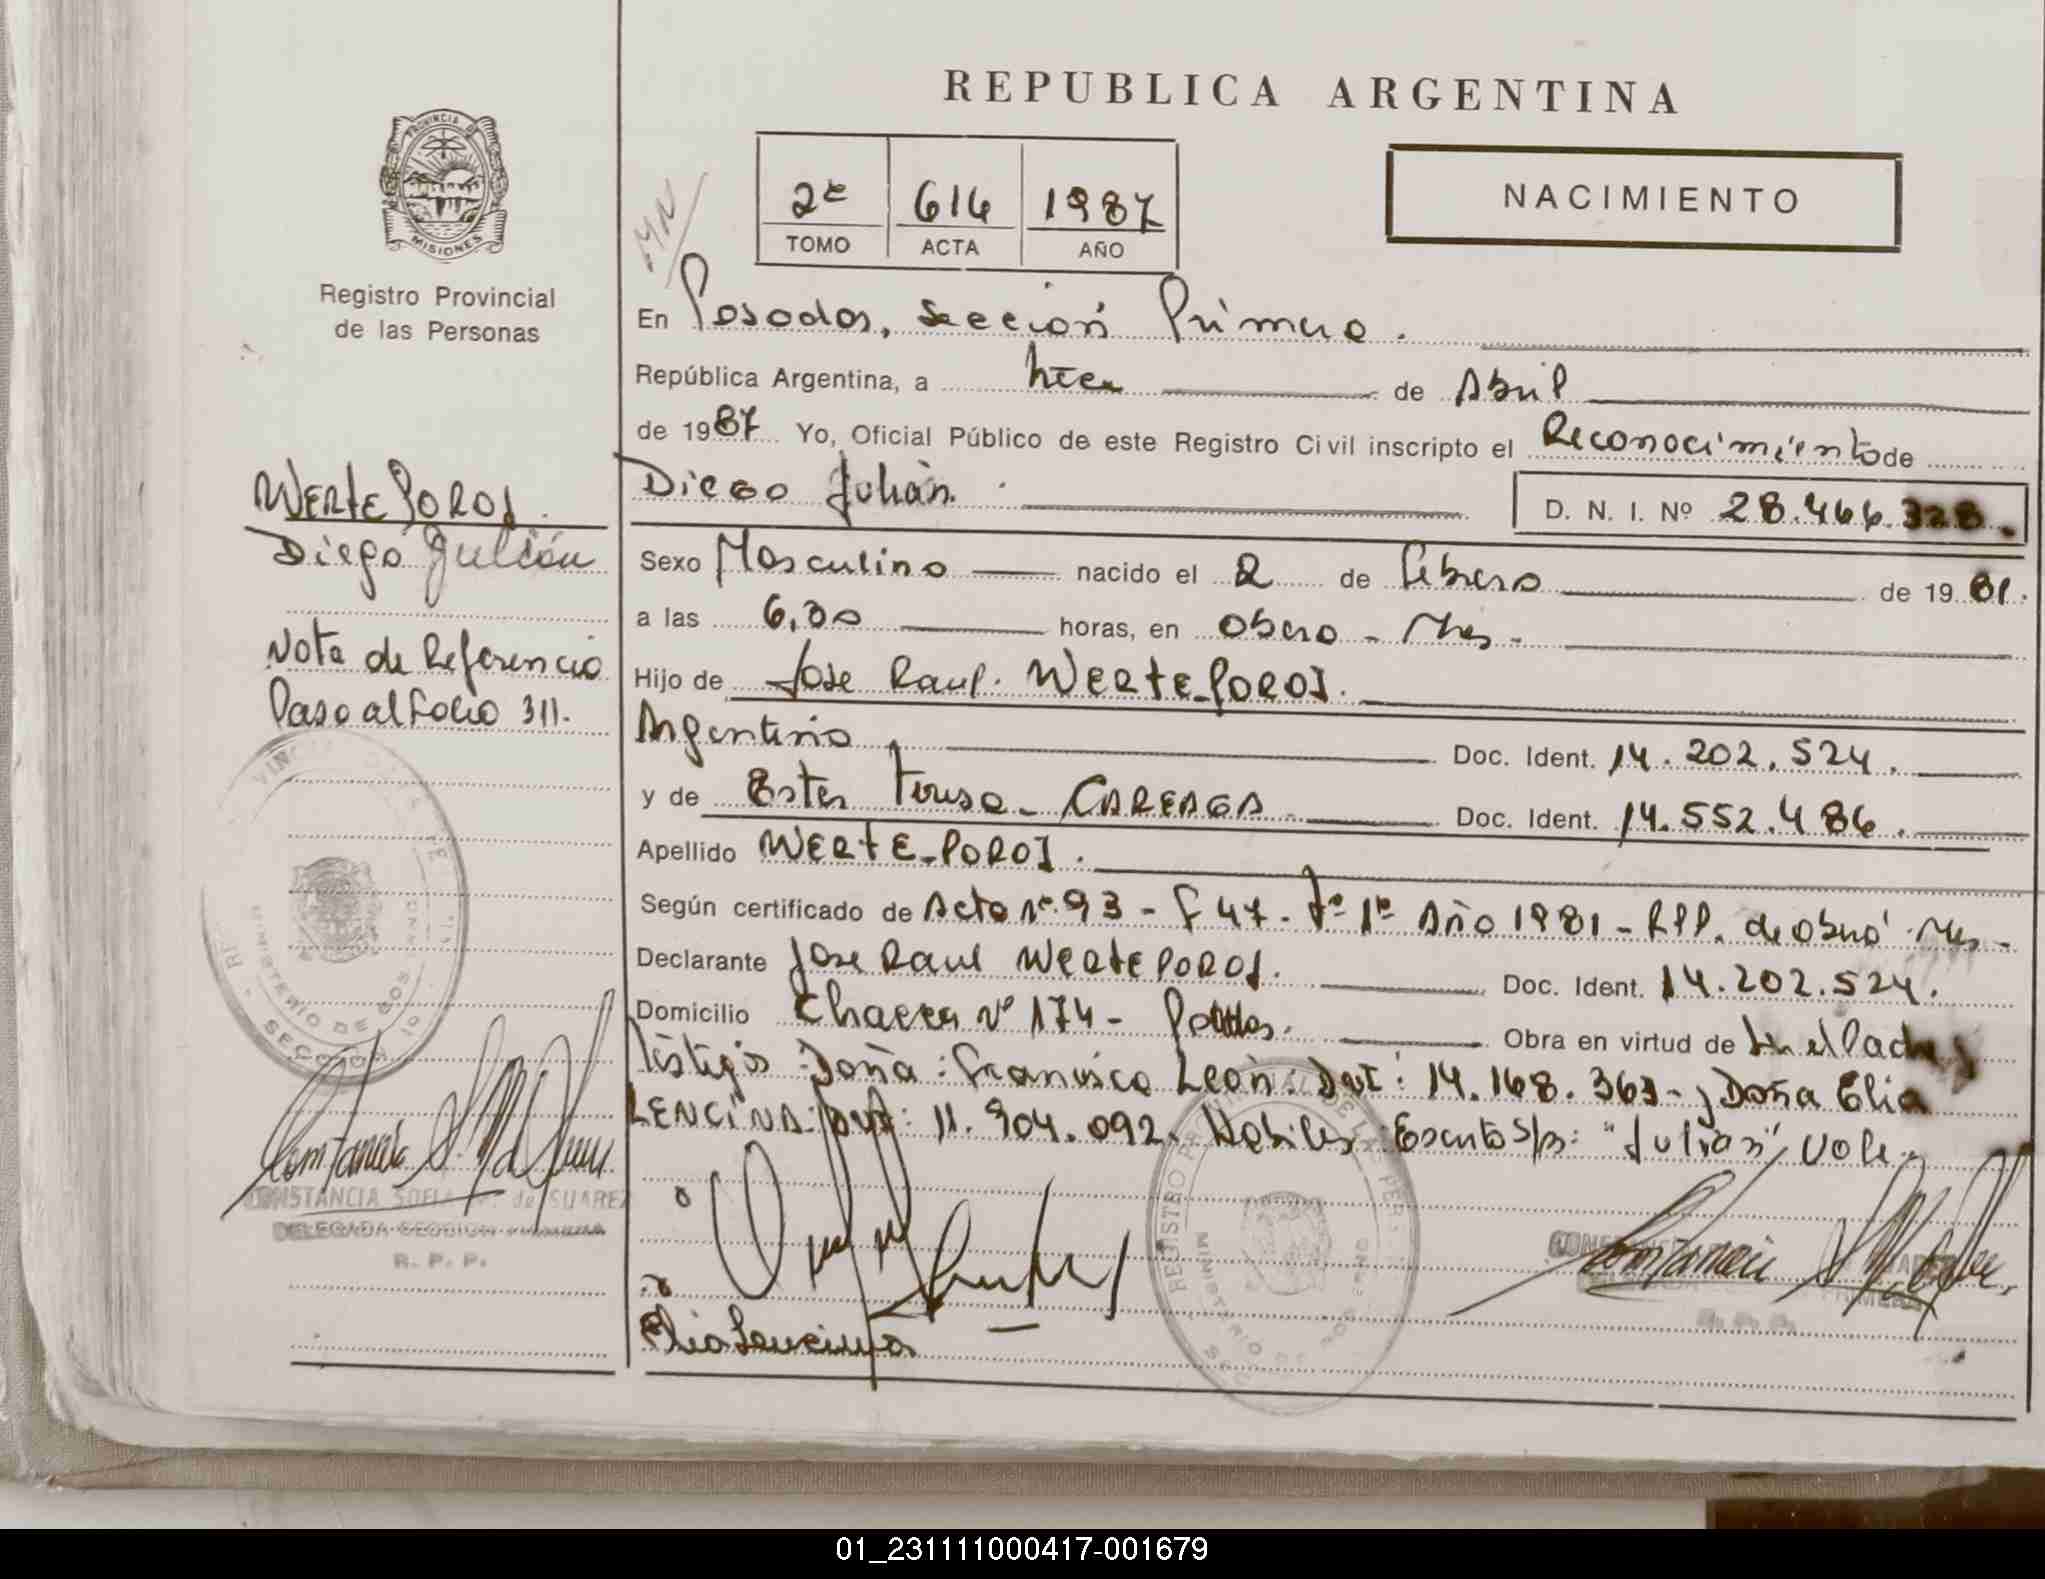 REPUBLICA ARGENTINA
NACIMIENTO
2º 614 1987
TOMO ACTA AÑO
PROVINCIA DE
MISIONES
Registro Provincial
de las Personas
En Posadas, Sección Primera.
República Argentina, a de Abril
de 1987 Yo, Oficial Público de este Registro Civil inscripto el Reconocimiento de
Diego Julián.
D. N. I. Nº 28.466.328.
Sexo Masculino nacido el 2 de Febrero de 1981.
a las 6,30 horas, en Obera - Mnes -
Hijo de Jose Raul. WERTE-POROJ.
Argentino Doc. Ident. 14.202.524.
y de Ester Teresa - CAREAGA Doc. Ident. 14.552.486.
Apellido WERTE-POROJ.
Según certificado de Acta Nº 93 - F 47 - Tº 1º Año 1981 - RPP. de Oberá Mnes -
Declarante Jose Raul WERTEPOROJ. Doc. Ident. 14.202.524.
Domicilio Chacra Nº 174 - Posadas. Obra en virtud de Ser el Padre
Testigos Doña: Francisca León: DNI: 14.168.363 - y Doña Elia
LENCINA: DNI: 11.904.092. Habiles: Escrito S/r: "Julian", Vale.
Elia Lencina
WERTEPOROJ.
Diego Julián
Nota de Referencia
Pasa al Folio 311.
CONSTANCIA SOFIA de SUAREZ
DELEGADA SECCION PRIMERA
R. P. P.
REGISTRO PROVINCIAL DE LAS PERS
MINISTERIO DE GOBIERNO
PRIMERA
R. P. P.
01_231111000417-001679